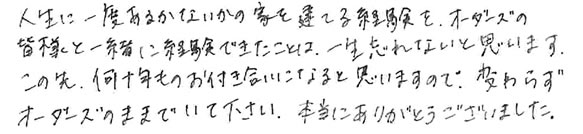 人生に一度あるかないかの家を建てる経験を、オーダーズの
皆様と一緒に経験できたことは、一生忘れないと思います。
この先、何十年ものお付き合いになると思いますので、変わらず
オーダーズのままでいて下さい。本当にありがとうございました。